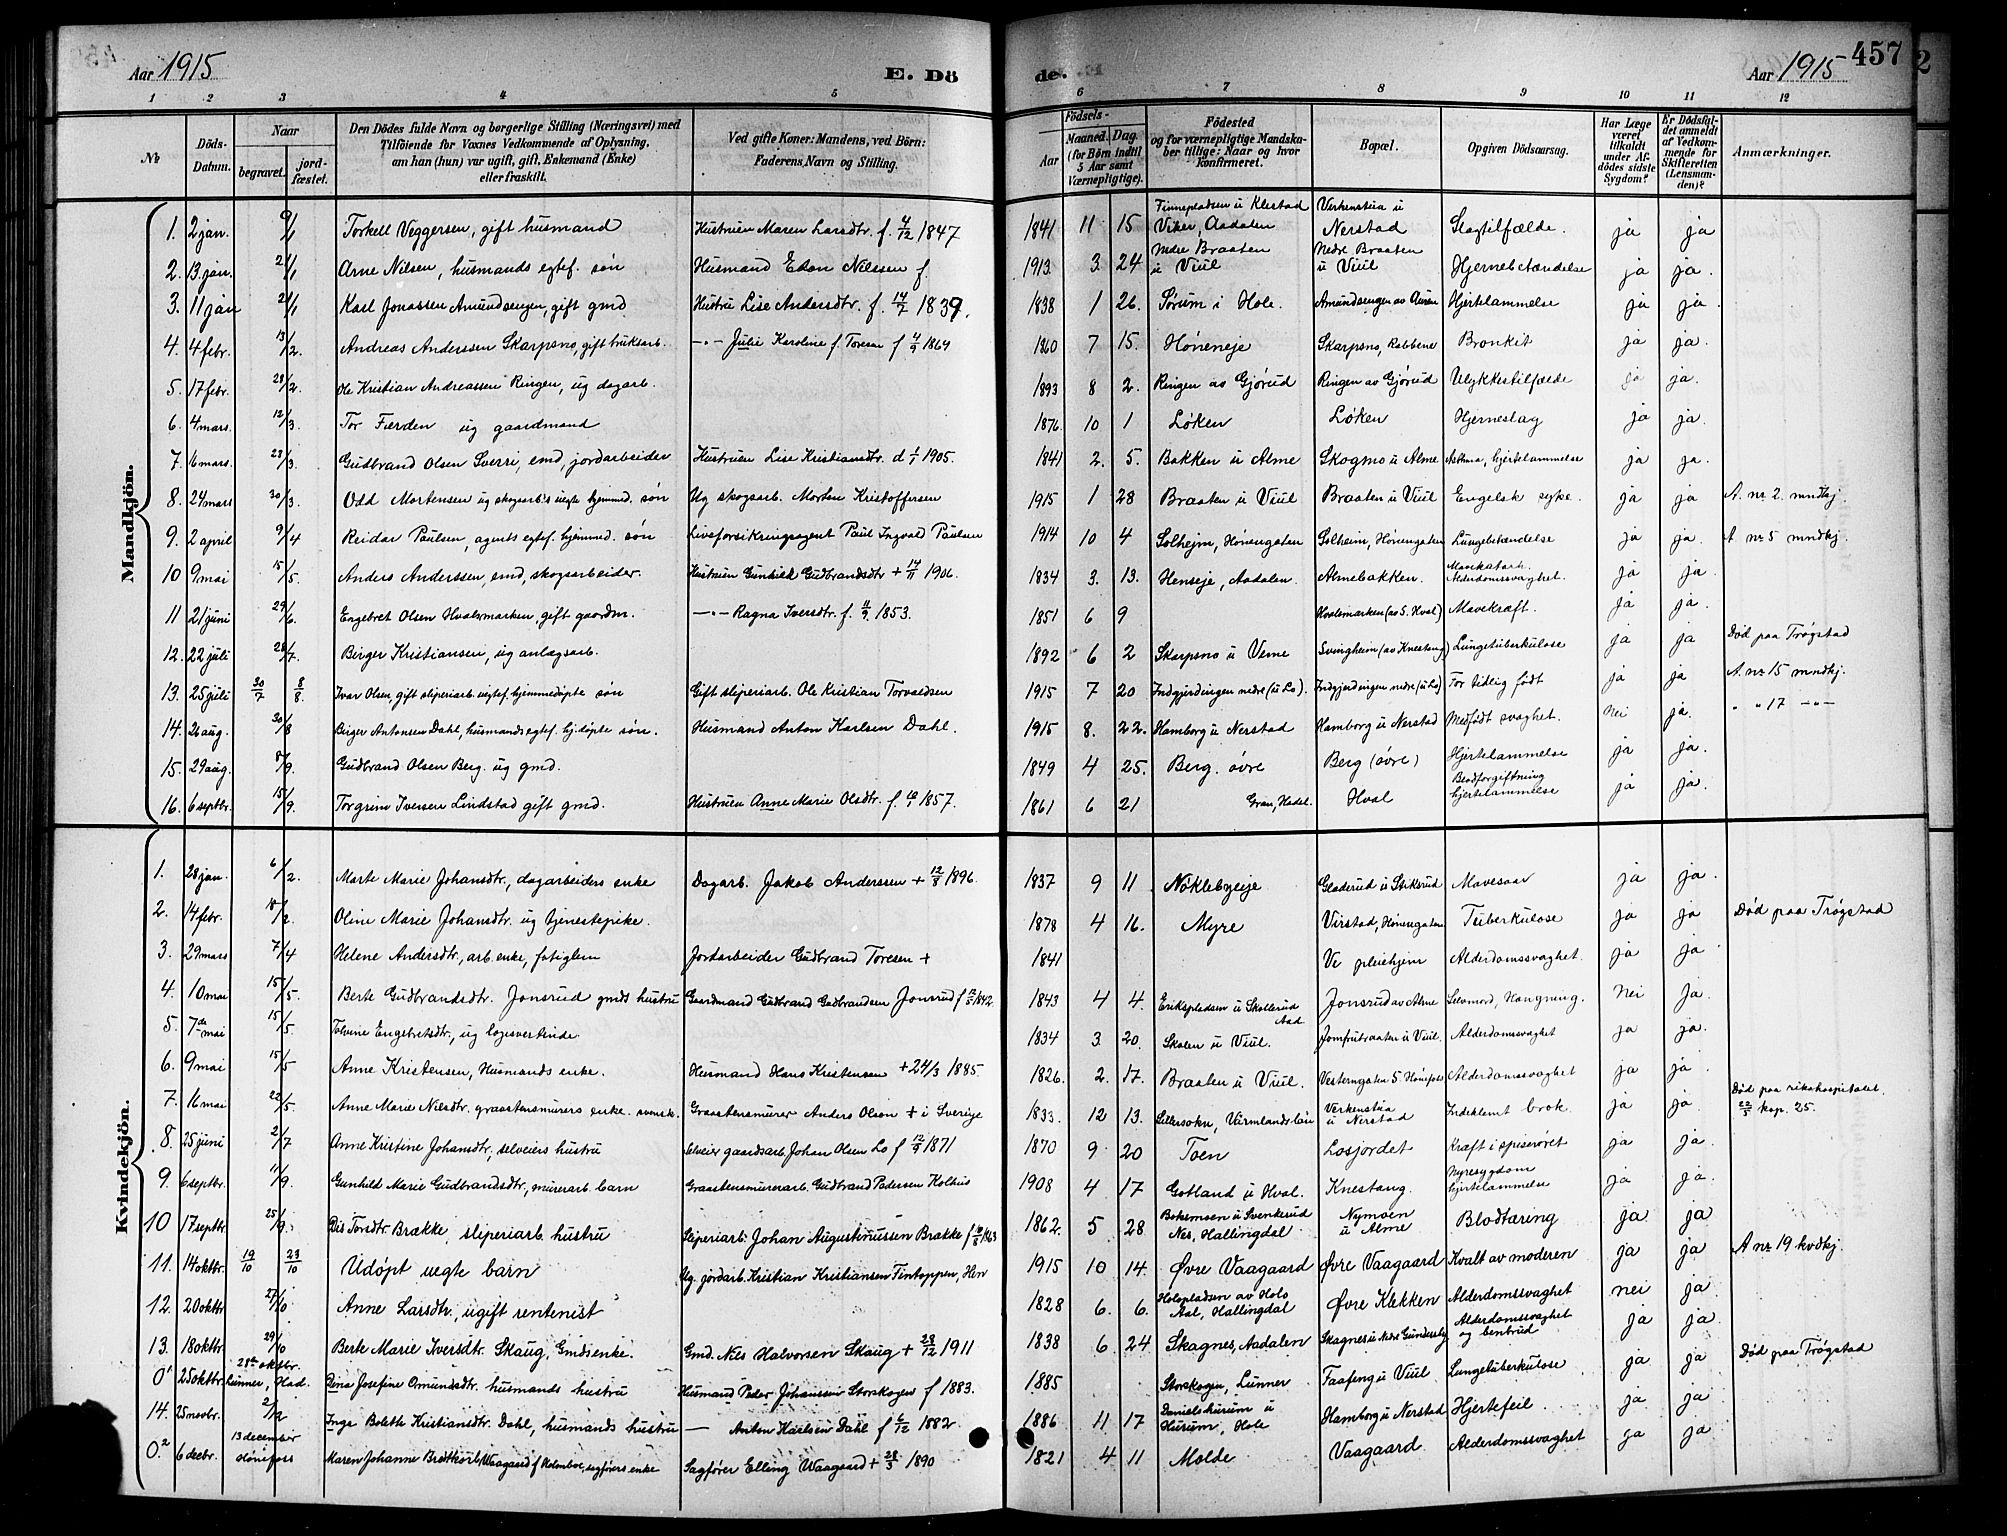 Aar 1915
E. Dö
de.
Aar 1915
457
1 2 3 4 5 6 7 8 9 10 11 12
No
Döds-Datum.
Naar
begravet.
jord-fæstet.
Den Dödes fulde Navn og borgerlige Stilling (Næringsvei) med
Tilföiende for Voxnes Vedkommende af Oplysning,
om han (hun) var ugift, gift, Enkemand (Enke)
eller fraskilt.
Ved gifte Koner: Mandens, ved Börn:
Faderens, Navn og Stilling.
Födsels-
Aar
Maaned. Dag.
(for Börn indtil
5 Aar samt
Værnepligtige).
Födested
og for værnepligtige Mandska-
ber tillige: Naar og hvor
konfirmeret.
Bopæl.
Opgiven Dödsaarsag.
Har Læge
været
tilkaldt
under Af-
dödes sidste
Sygdom?
Er Dödsfal-
det anmeldt
af Vedkom-
mende for
Skifteretten
(Lensman-
den)?
Anmærkninger.
Mandkjön.
1. 2 jan. 9/1 Torkell Veggersen, gift husmand Hustruen Maren Larsdtr. f. 4/12 1847 1841 11 15 Finnepladsen u Klestad Viker, Aadalen Verkenstua u Nerstad Slagtilfælde. ja ja
2. 13. jan. 21/1 Arne Nilsen, husmands egtef. søn Husmand Edon Nilssen f. 1913. 3. 24 Nedre Braaten u Viul Nedre Braaten u Viul Hjernebetændelse ja ja.
3. 11 jan 21/1 Karl Jonassen Amundsengen, gift gmd Hustru Lise Andersdtr. f. 14/2 1839. 1838 1 26. Sørum i Hole. Amundsengen av Auren Hjertelammelse ja ja.
4. 4 febr. 13/2. Andreas Anderssen Skarpsno, gift bruksarb. —"— Julie Karoline f. Toresen f 4/9 1864 1860 7 15. Høneneje Skarpsno, Robbene Bronkit ja ja.
5. 17 febr. 28/2. Ole Kristian Andreassen Ringen, ug dagarb. 1893 8 2. Ringen av Gjørud Ringen av Gjørud Ulykkestilfælde ja ja.
6. 4 mars. 12/3. Tor Fierden ug gaardmand 1876. 10 1 Løken Løken Hjerneslag ja ja.
7. 16 mars. 23/3. Gudbrand Olsen Sverri, emd, jordarbeider Hustruen Lise Kristiansdtr. d 1/1 1905. 1841 2. 5. Bakken u Alme Skogmo u Alme Asthma, hjertelammelse ja ja.
8. 24 mars 30/3. Odd Mortensen ug skogarb.s uegte hjemmed. søn Ug skogsarb. Morten Kristoffersen 1915 1 28 Braaten u Viul Braaten u Viul Engelsk syke. ja ja A. nr 2. mndkj.
9. 2 april 9/4 Reidar Paulsen, agents egtef. hjemmed. søn Livsforsikringsagent Paul Ingvald Paulsen 1914 10 4 Solhejm, Hønengaten Solheim, Hønengaten Lungebetændelse ja ja. A nr 5 mndkj.
10 9 mai 15/5. Anders Anderssen, emd, skogsarbeider. Hustruen Gunhild Gudbrandsdtr + 14/11 1906. 1834 3. 13. Henseje, Aadalen. Almebakken. Mavekatarh. Alderdomssvaghet. ja ja.
11 21 juni 29/6. Engebret Olsen Hvalsmarken, gift gaardm. —"— Ragna Iversdtr. f. 11/9. 1853. 1851 6 9 Hvalsmarken (av S. Hval) Mavekræft. ja ja.
12. 22 juli 28/7. Birger Kristiansen, ug anlægsarb. 1892 6 2 Skarpsno u Veme Svingheim (av Knestang) Lungetuberkulose ja ja Død paa Trøgstad
13. 25 juli 30/7 8/8. Ivar Olsen, gift sliperiarb. uegtef. hjemmedøpte søn Gift sliperiarb. Ole Kristian Torvaldsen 1915 7 20 Indgjerdingen nedre (u Lo). Indgjerdingen nedre (u Lo) For tidlig født ja ja A. nr 15 mndkj.
14. 26 aug. 30/8 Birger Antonsen Dahl, husmands egtef. hj.døpte søn. Husmand Anton Karlsen Dahl. 1915 8. 22. Hamborg u Nerstad Hamborg u Nerstad Medfødt svaghet. Nei ja. " " 17 —"—
15. 29 aug. 8/9. Gudbrand Olsen Berg. ug gmd. 1849 4 25. Berg. øvre Berg (øvre) Hjertelammelse ja ja.
16. 6 septbr. 15/9. Torgrim Iversen Lindstad gift gmd. Hustruen Anne Marie Olsdtr. f. 1857. 1861 6 21 Gran, Hadel. Hval Blodforgiftning hjertelammelse ja ja.
Kvindekjön.
1. 28 jan. 6/2. Marte Marie Johansdtr., dagarbeiders enke Dagarb. Jakob Anderssen + 12/8 1896. 1837 9 11 Nøklebyeje Gladerud u Stikrud Mavesaar ja ja.
2. 14 febr. 18/2. Oline Marie Johansdtr. ug tjenestepike. 1878 4 16. Myre Virstad, Hønengaten Tuberkulose ja ja Død paa Trøgstad
3. 29 mars 7/4 Helene Andersdtr., arb. enke, fatiglem Jordarbeider Gudbrand Toresen + 1841 Ve pleiehjem Alderdomssvaghet. ja ja
4. 10 mai 15/5. Berte Gudbrandsdtr. Jonsrud gmds hustru Gaardmand Gudbrand Gudbrandsen Jonsrud f 1842 1843 4 4. Erikspladsen u Skollerud Aad Jonsrud av Alme Selvmord, Hængning. Nei Ja.
5. 7de mai 15/5. Tolvine Engebretsdtr., ug logivertinde 1834 3 20. Skolen u Viul. Jomfrubraaten u Viul. Alderdomssvaghet ja ja.
6. 9 mai 15/5 Anne Kristensen, Husmands enke. Husmand Hans Kristensen + 24/3 1885 1826. 2. 17. Braaten u Viul. Vesterngaten 5 Hønefoss Alderdomssvaghet ja ja.
7. 16 mai 22/5. Anne Marie Nilsdtr. graastensmurers enke. svensk. Graastensmurer Anders Olson + i Sverige 1833. 12 13. Sillersokn, Värmlands län Verkenstua u Nerstad Indeklemt brok. ja ja. Død paa rikshospitalet. 22/5 kap. 25.
8. 25 juni 2/7 Anne Kristine Johansdtr, selveiers hustru Selveier gaardsarb. Johan Olsen Lo f 12/9 1871 1870 9 20 Toen Losjordet Kræft i spiserøret ja ja.
9. 6 septbr. 11/9. Gunhild Marie Gudbrandsdtr, murerarb. barn Graastensmurerarb. Gudbrand Pedersen Kolhus 1908 4 17 Gotland u Hval. Knestang. Nyresygdom hjertelammelse ja ja.
10 17 septbr. 25/9. Dis Torsdtr. Brække, sliperiarb. hustru Sliperiarb. Johan Augustinussen Brække f 1863 1862. 5 28 Bokemoen u Svenkerud Nes, Hallingdal Nymoen u Alme Blodtæring ja ja
11. 14 oktbr. 19/10 23/10 Udøpt uegte barn Ug. jordarb. Kristian Kristiansen Fintoppen, Hen 1915 10 14. Øvre Vaagaard Øvre Vaagaard Kvalt av moderen ja ja A nr 19 kvdkj.
12. 20 oktbr 27/10 Anne Larsdtr., ugift rentenist 1828 6. 6. Holspladsen av Hols Aal, Hallingdal Øvre Klekken Alderdomssvaghet nei ja.
13. 18 oktbr 29/10 Berte Marie Iversdtr. Skaug, Gmdsenke. Gmd. Nils Halvorsen Skaug + 28/12 1911 1838 6 24 Skagnes, Aadalen Skagnes u Nedre Gunderseby Alderdomssvaghet og benbrud ja ja.
0¹ 25 oktbr. 28de oktbr. Lunner, Had. Dina Josefine Omundsdtr. husmands hustru Husmand Peder Johanssen Storskogen f 1883. 1885 Storskogen, Lunner Faafeng u Viul Lungetuberkulose ja ja Død paa Trøgstad
14. 25 novbr. 2/12 Inga Bolette Kristiansdtr. Dahl, husmands hustru — Anton Karlsen Dahl f 6/12 1882 1886 11 17 Danielshusum u Husum, Hole Hamborg u Nerstad Hjertefeil. ja ja
0.² 6 decbr. 13 december Hønefoss Maren Johanne Brodtkorb Waagaard f Holmboe, sagførers enke Sagfører Elling Waagaard + 28/3 1890 1821 4 11 Molde Vaagaard. Alderdomssvaghet ja ja